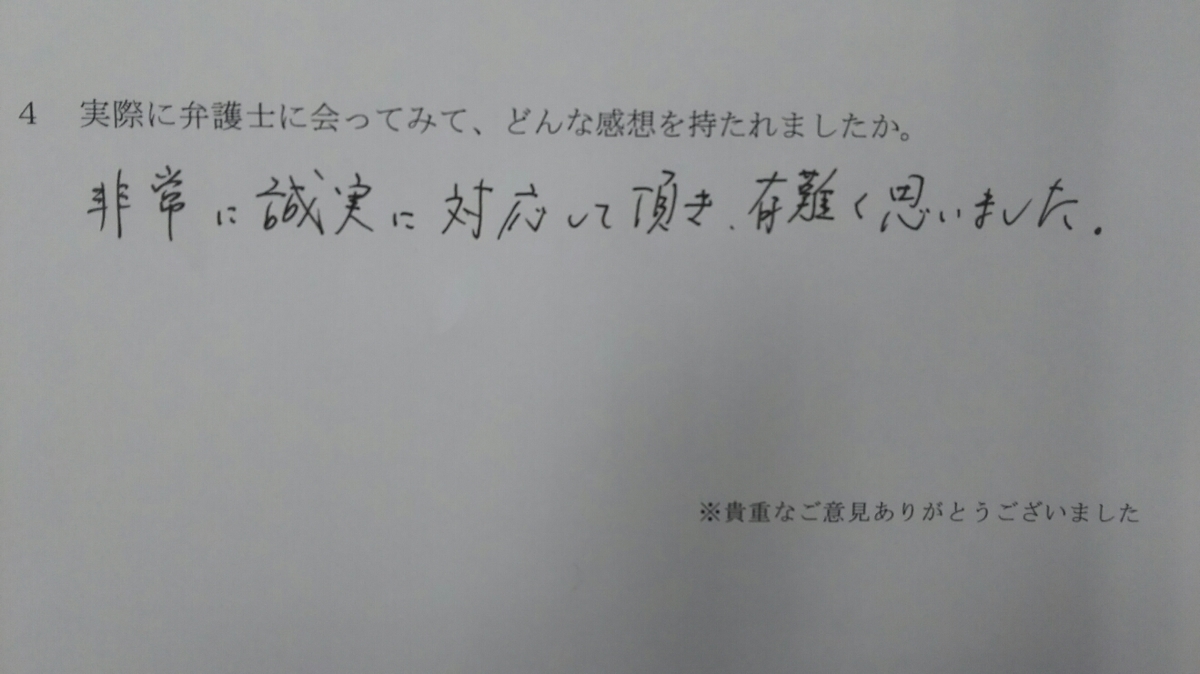 4 実際に弁護士に会ってみて、どんな感想を持たれましたか。
非常に誠実に対応して頂き、有難く思いました。
※貴重なご意見ありがとうございました